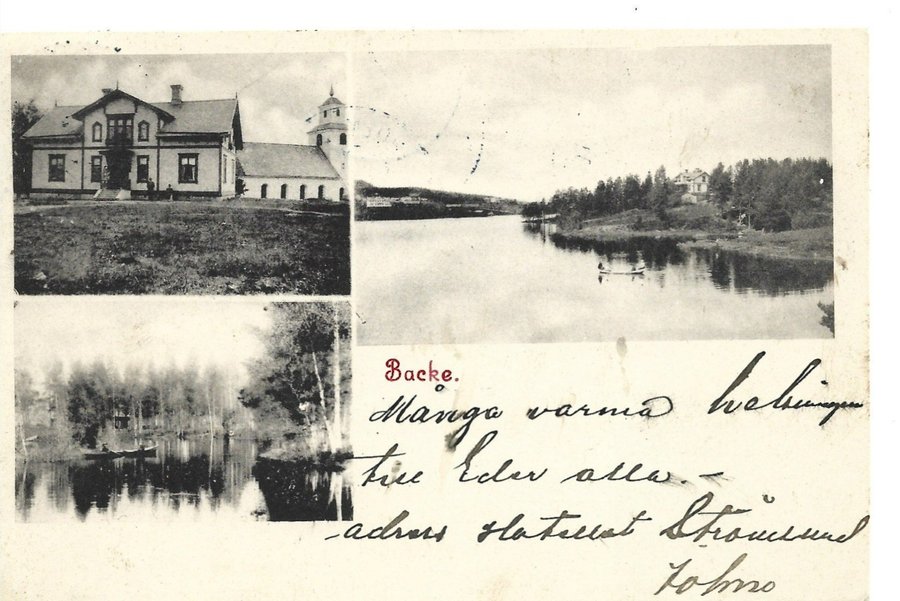 Backe.
Många varma helsningar
till Eder alla. –
adress Hotellet Strömsund